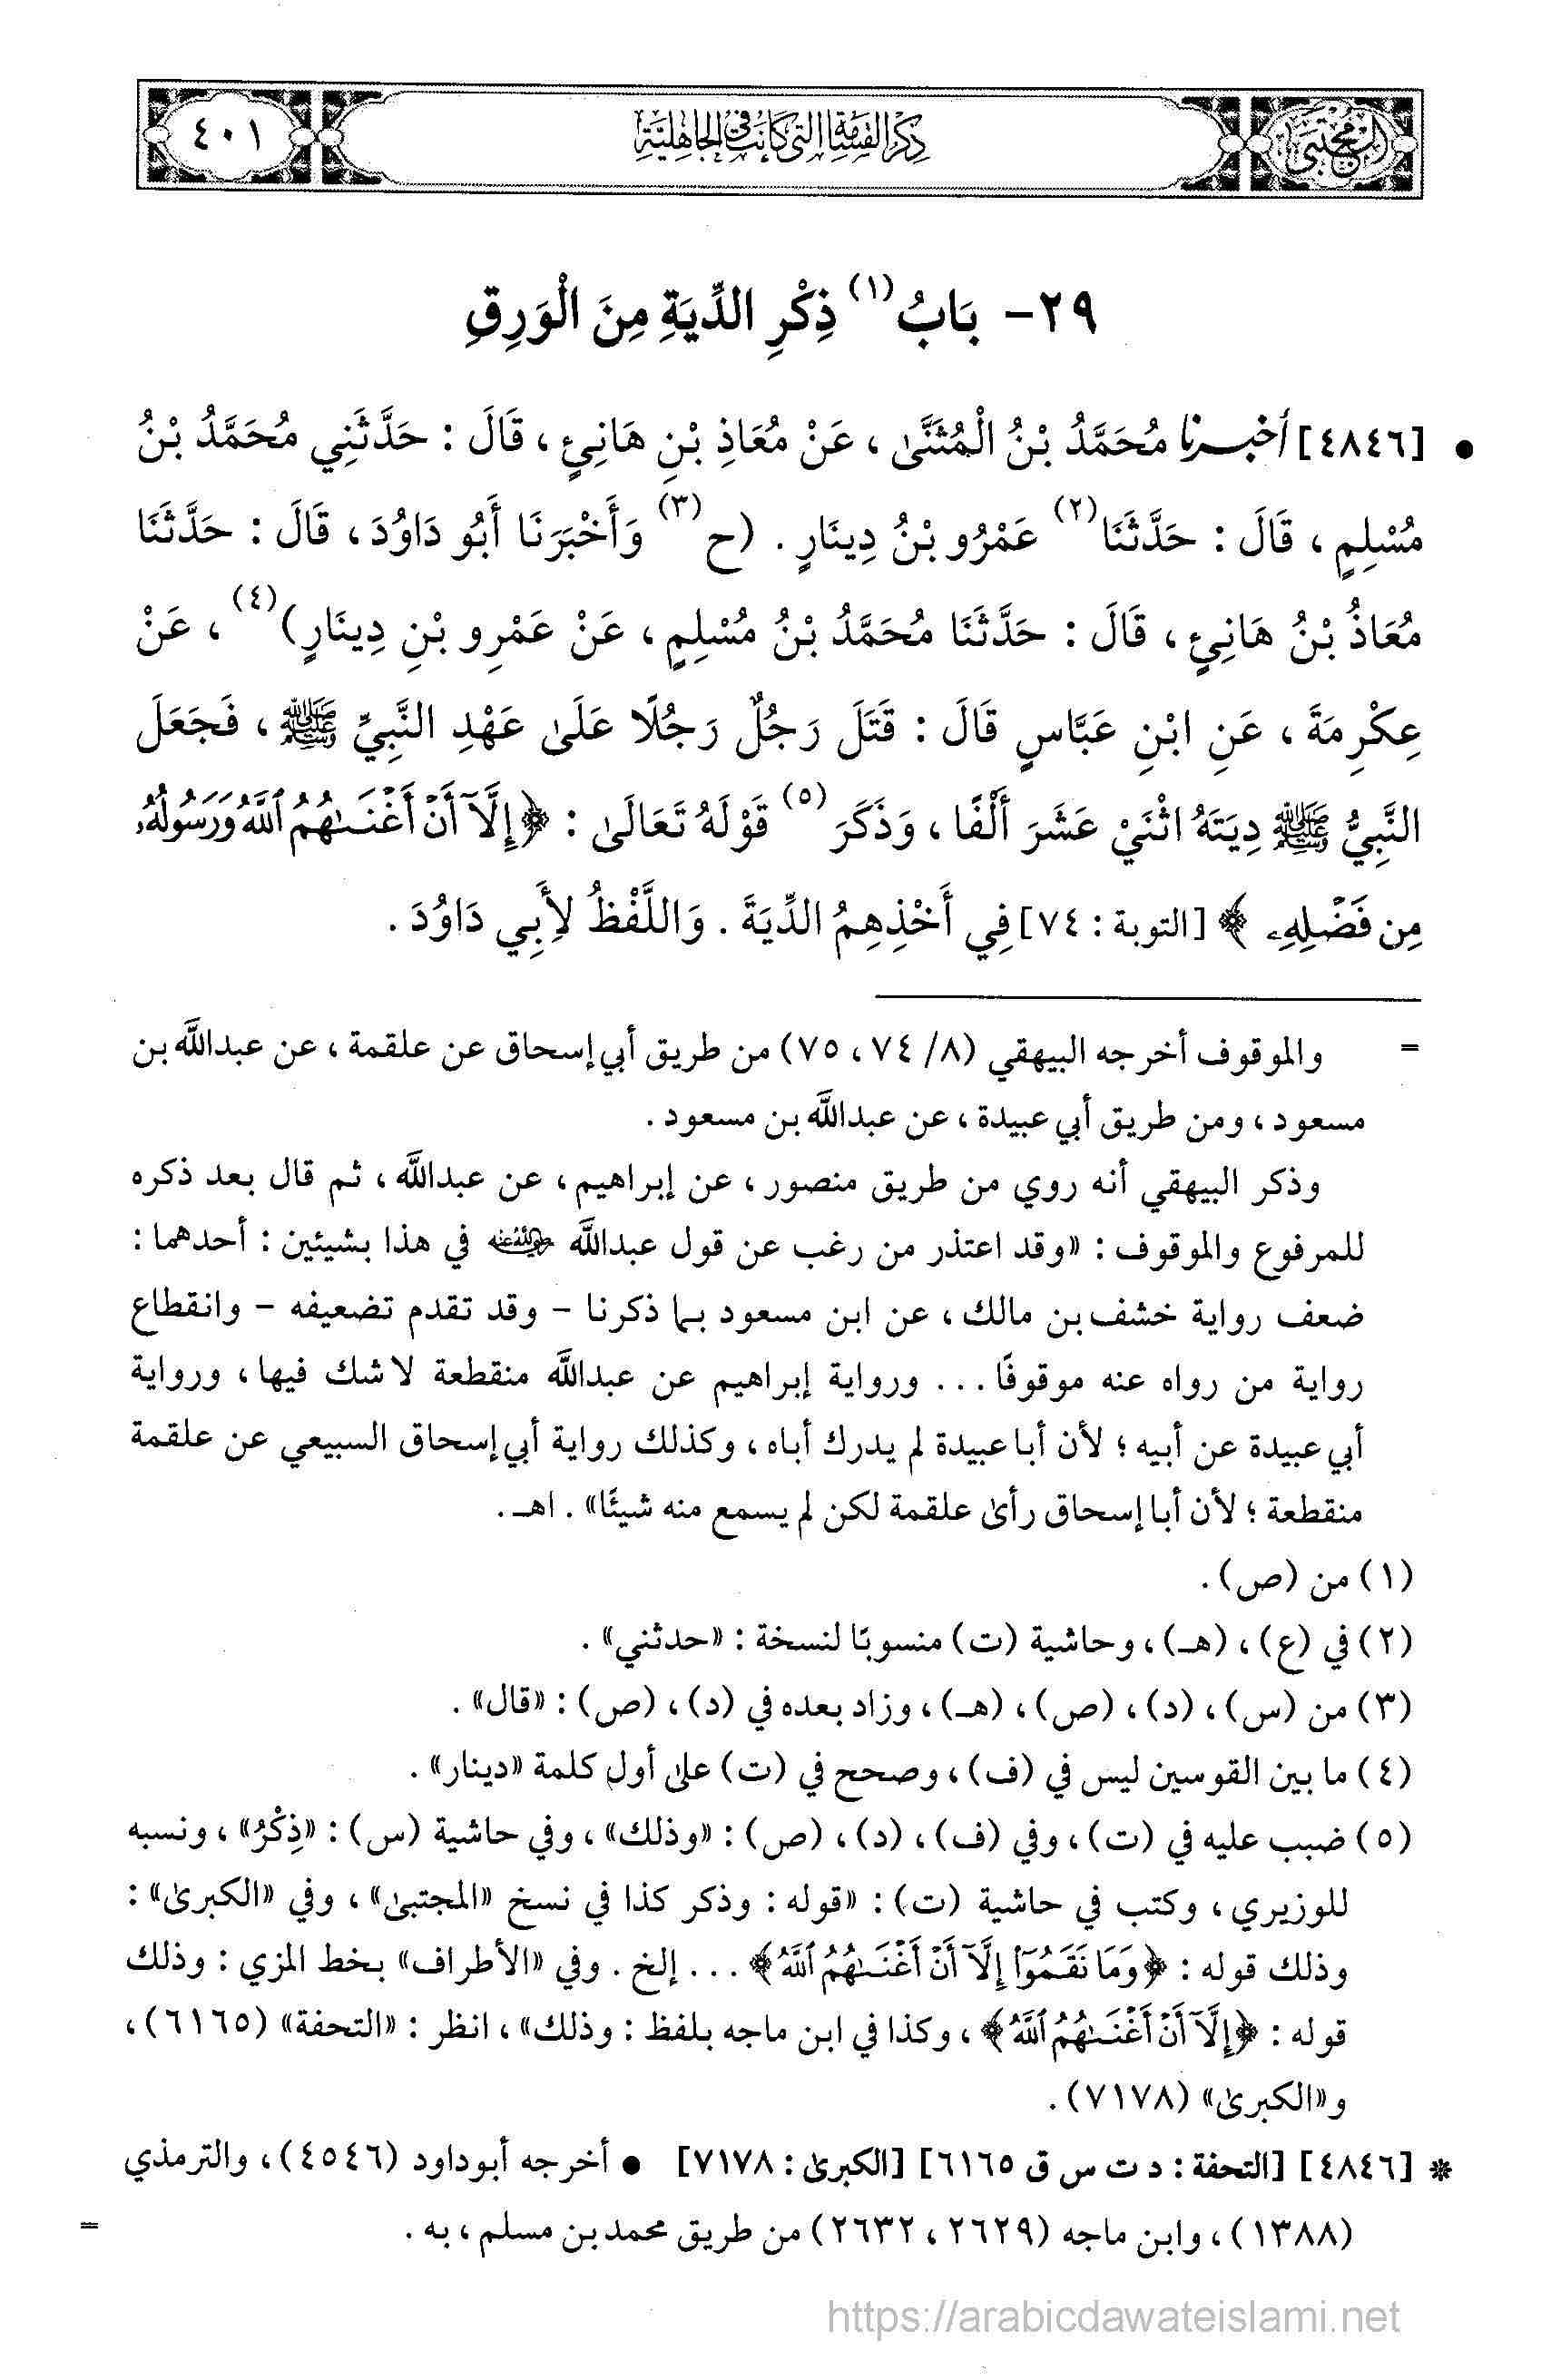 المجتبى
ذكر القسامة التي كانت في الجاهلية
٤٠١
٢٩- بَابُ(١) ذِكْرِ الدِّيَةِ مِنَ الْوَرِقِ
• [٤٨٤٦] أخبرنا مُحَمَّدُ بْنُ الْمُثَنَّىٰ ، عَنْ مُعَاذِ بْنِ هَانِئٍ ، قَالَ : حَدَّثَنِي مُحَمَّدُ بْنُ
مُسْلِمٍ ، قَالَ : حَدَّثَنَا(٢) عَمْرُو بْنُ دِينَارٍ . (ح(٣) وَأَخْبَرَنَا أَبُو دَاوُدَ ، قَالَ : حَدَّثَنَا
مُعَاذُ بْنُ هَانِئٍ ، قَالَ : حَدَّثَنَا مُحَمَّدُ بْنُ مُسْلِمٍ ، عَنْ عَمْرِو بْنِ دِينَارٍ)(٤) ، عَنْ
عِكْرِمَةَ ، عَنِ ابْنِ عَبَّاسٍ قَالَ : قَتَلَ رَجُلٌ رَجُلًا عَلَىٰ عَهْدِ النَّبِيِّ ﷺ ، فَجَعَلَ
النَّبِيُّ ﷺ دِيَتَهُ اثْنَيْ عَشَرَ أَلْفًا ، وَذَكَرَ(٥) قَوْلَهُ تَعَالَىٰ : ﴿إِلَّآ أَنْ أَغْنَىٰهُمُ ٱللَّهُ وَرَسُولُهُۥ
مِن فَضْلِهِۦ ﴾ [التوبة : ٧٤] فِي أَخْذِهِمُ الدِّيَةَ . وَاللَّفْظُ لِأَبِي دَاوُدَ .
= والموقوف أخرجه البيهقي (٨/ ٧٤، ٧٥) من طريق أبي إسحاق عن علقمة ، عن عبداللَّه بن
مسعود ، ومن طريق أبي عبيدة ، عن عبداللَّه بن مسعود .
وذكر البيهقي أنه روي من طريق منصور ، عن إبراهيم ، عن عبداللَّه ، ثم قال بعد ذكره
للمرفوع والموقوف : «وقد اعتذر من رغب عن قول عبداللَّه رضي الله عنه في هذا بشيئين : أحدهما :
ضعف رواية خشف بن مالك ، عن ابن مسعود بما ذكرنا - وقد تقدم تضعيفه - وانقطاع
رواية من رواه عنه موقوفًا ... ورواية إبراهيم عن عبداللَّه منقطعة لا شك فيها ، ورواية
أبي عبيدة عن أبيه ؛ لأن أبا عبيدة لم يدرك أباه ، وكذلك رواية أبي إسحاق السبيعي عن علقمة
منقطعة ؛ لأن أبا إسحاق رأىٰ علقمة لكن لم يسمع منه شيئًا» . اهـ .
(١) من (ص) .
(٢) في (ع) ، (هـ) ، وحاشية (ت) منسوبًا لنسخة : «حدثني» .
(٣) من (س) ، (د) ، (ص) ، (هـ) ، وزاد بعده في (د) ، (ص) : «قال» .
(٤) ما بين القوسين ليس في (ف) ، وصحح في (ت) علىٰ أول كلمة «دينار» .
(٥) ضبب عليه في (ت) ، وفي (ف) ، (د) ، (ص) : «وذلك» ، وفي حاشية (س) : «ذِكْرُ» ، ونسبه
للوزيري ، وكتب في حاشية (ت) : «قوله : وذكر كذا في نسخ «المجتبىٰ» ، وفي «الكبرىٰ» :
وذلك قوله : ﴿وَمَا نَقَمُوٓا۟ إِلَّآ أَنْ أَغْنَىٰهُمُ ٱللَّهُ﴾ ... إلخ . وفي «الأطراف» بخط المزي : وذلك
قوله : ﴿إِلَّآ أَنْ أَغْنَىٰهُمُ ٱللَّهُ﴾ ، وكذا في ابن ماجه بلفظ : وذلك» ، انظر : «التحفة» (٦١٦٥) ،
و«الكبرىٰ» (٧١٧٨) .
* [٤٨٤٦] [التحفة : د ت س ق ٦١٦٥] [الكبرىٰ : ٧١٧٨] • أخرجه أبو داود (٤٥٤٦) ، والترمذي
(١٣٨٨) ، وابن ماجه (٢٦٢٩ ، ٢٦٣٢) من طريق محمد بن مسلم ، به . =
https://arabicdawateislami.net